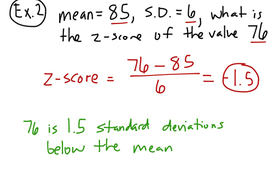 Ex. 2 mean = 85, S.D. = 6, what is
the z-score of the value 76
z-score = 76 - 85 / 6 = -1.5
76 is 1.5 standard deviations
below the mean